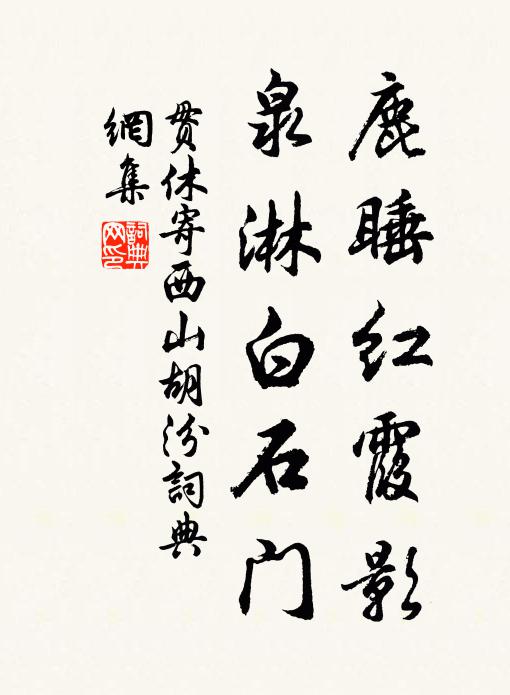 鹿睡紅霞影
泉淋白石門
貫休寄西山胡汾詞典
網集
詞典
网印